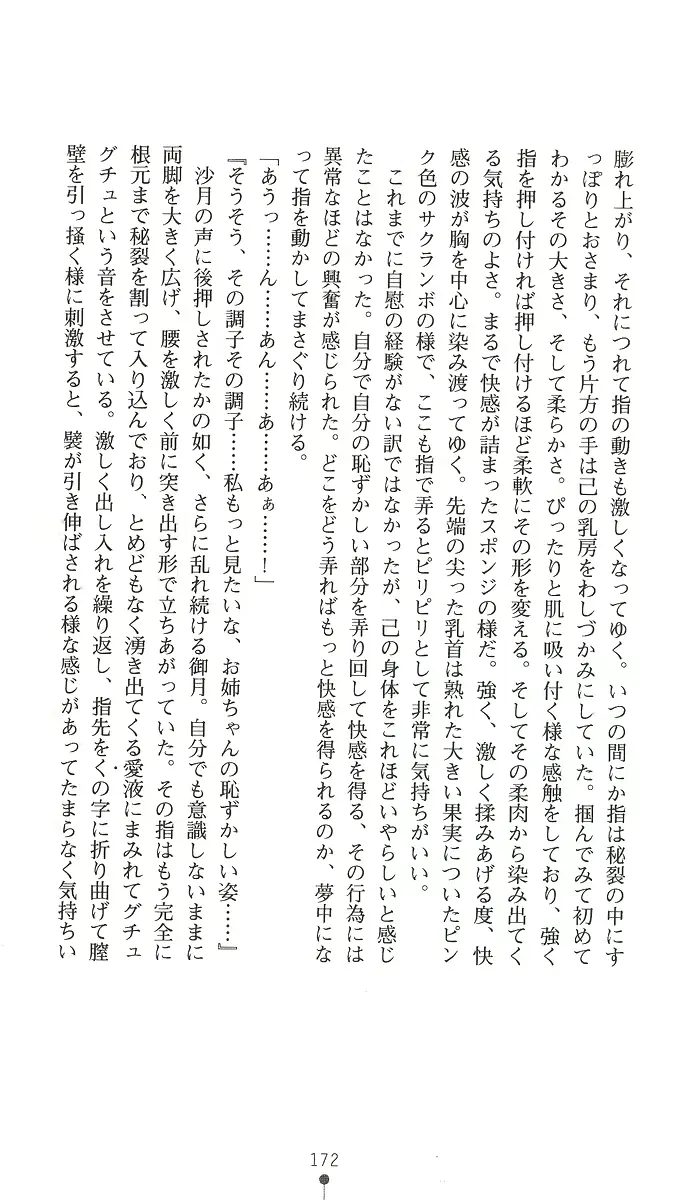 膨れ上がり、それにつれて指の動きも激しくなってゆく。いつの間にか指は秘裂の中にす
っぽりとおさまり、もう片方の手は己の乳房をわしづかみにしていた。掴んでみて初めて
わかるその大きさ、そして柔らかさ。ぴったりと肌に吸い付く様な感触をしており、強く
指を押し付ければ押し付けるほど柔軟にその形を変える。そしてその柔肉から染み出てく
る気持ちのよさ。まるで快感が詰まったスポンジの様だ。強く、激しく揉みあげる度、快
感の波が胸を中心に染み渡ってゆく。先端の尖った乳首は熟れた大きい果実についたピン
ク色のサクランボの様で、ここも指で弄るとピリピリとして非常に気持ちがいい。
　これまでに自慰の経験がない訳ではなかったが、己の身体をこれほどいやらしいと感じ
たことはなかった。自分で自分の恥ずかしい部分を弄り回して快感を得る、その行為には
異常なほどの興奮が感じられた。どこをどう弄ればもっと快感を得られるのか、夢中にな
って指を動かしてまさぐり続ける。
「あうっ……ん……あん……あ……あぁ……！」
『そうそう、その調子その調子……私もっと見たいな、お姉ちゃんの恥ずかしい姿……』
　沙月の声に後押しされたかの如く、さらに乱れ続ける御月。自分でも意識しないままに
両脚を大きく広げ、腰を激しく前に突き出す形で立ちあがっていた。その指はもう完全に
根元まで秘裂を割って入り込んでおり、とめどもなく湧き出てくる愛液にまみれてグチュ
グチュという音をさせている。激しく出し入れを繰り返し、指先をくの字に折り曲げて膣
壁を引っ掻く様に刺激すると、襞が引き伸ばされる様な感じがあってたまらなく気持ちい
172